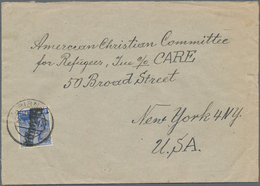 American Christian Committee
for Refugees, Inc c/o CARE
50 Broad Street
New York 4 N.Y.
U.S.A.